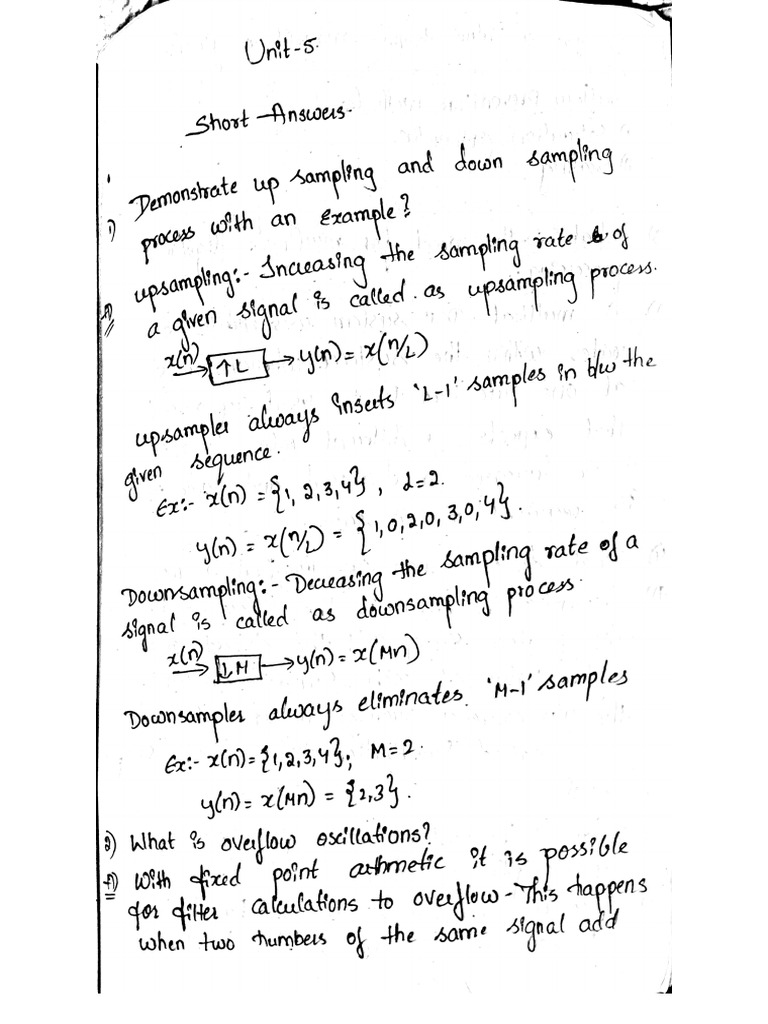 Unit-5.
Short Answers.
1) Demonstrate up sampling and down sampling
process with an example?
A) upsampling:- Increasing the sampling rate of
a given signal is called as upsampling process.
x(n) → ↑L → y(n) = x(n/L)
upsampler always inserts 'L-1' samples in b/w the
given sequence.
Ex:- x(n) = {1, 2, 3, 4}, L=2.
y(n) = x(n/L) = {1, 0, 2, 0, 3, 0, 4}.
Downsampling:- Decreasing the sampling rate of a
signal is called as downsampling process.
x(n) → ↓M → y(n) = x(Mn)
Downsampler always eliminates 'M-1' samples
Ex:- x(n) = {1, 2, 3, 4}; M=2.
y(n) = x(Mn) = {2, 3}.
2) What is overflow oscillations?
A) With fixed point arthmetic it is possible
for filter calculations to overflow - This happens
when two numbers of the same signal add